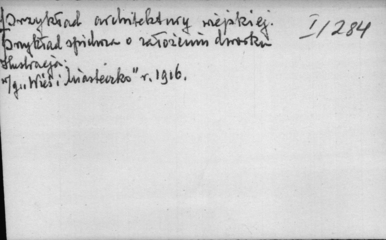 Przykład architektury wiejskiej. I/284
Przykład spichrza o założeniu dworku
Ilustracja:
w/g „Wieś i Miasteczko" r. 1916.